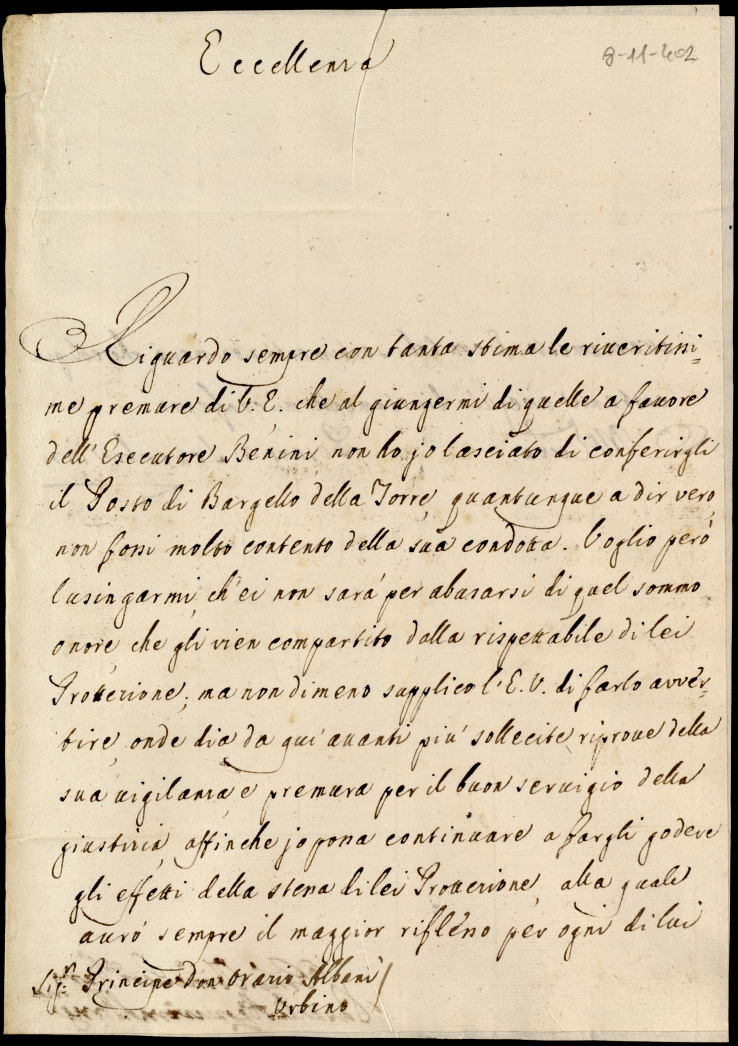 Eccellenza
8-11-402
Riguardo sempre con tanta stima le riveritissi=
me premure di V. E. che al giungermi di quelle a favore
dell' Esecutore Benini, non ho jo lasciato di conferirgli
il Posto di Bargello della Torre, quantunque a dir vero,
non fossi molto contento della sua condotta. Voglio però
lusingarmi, ch' ei non sarà per abusarsi di quel sommo
onore, che gli vien compartito dalla rispettabile di lei
Protezione; ma non di meno supplico l' E. V. di farlo avver-
tire, onde dia da qui avanti più sollecite riprove della
sua vigilanza e premura per il buon servigio della
giustizia, affinche jo possa continuare a fargli godere
gli effetti della stessa di lei Protezione, alla quale
aurò sempre il maggior riflesso per ogni di lui
Sig.r Principe Don Orazio Albani
Urbino